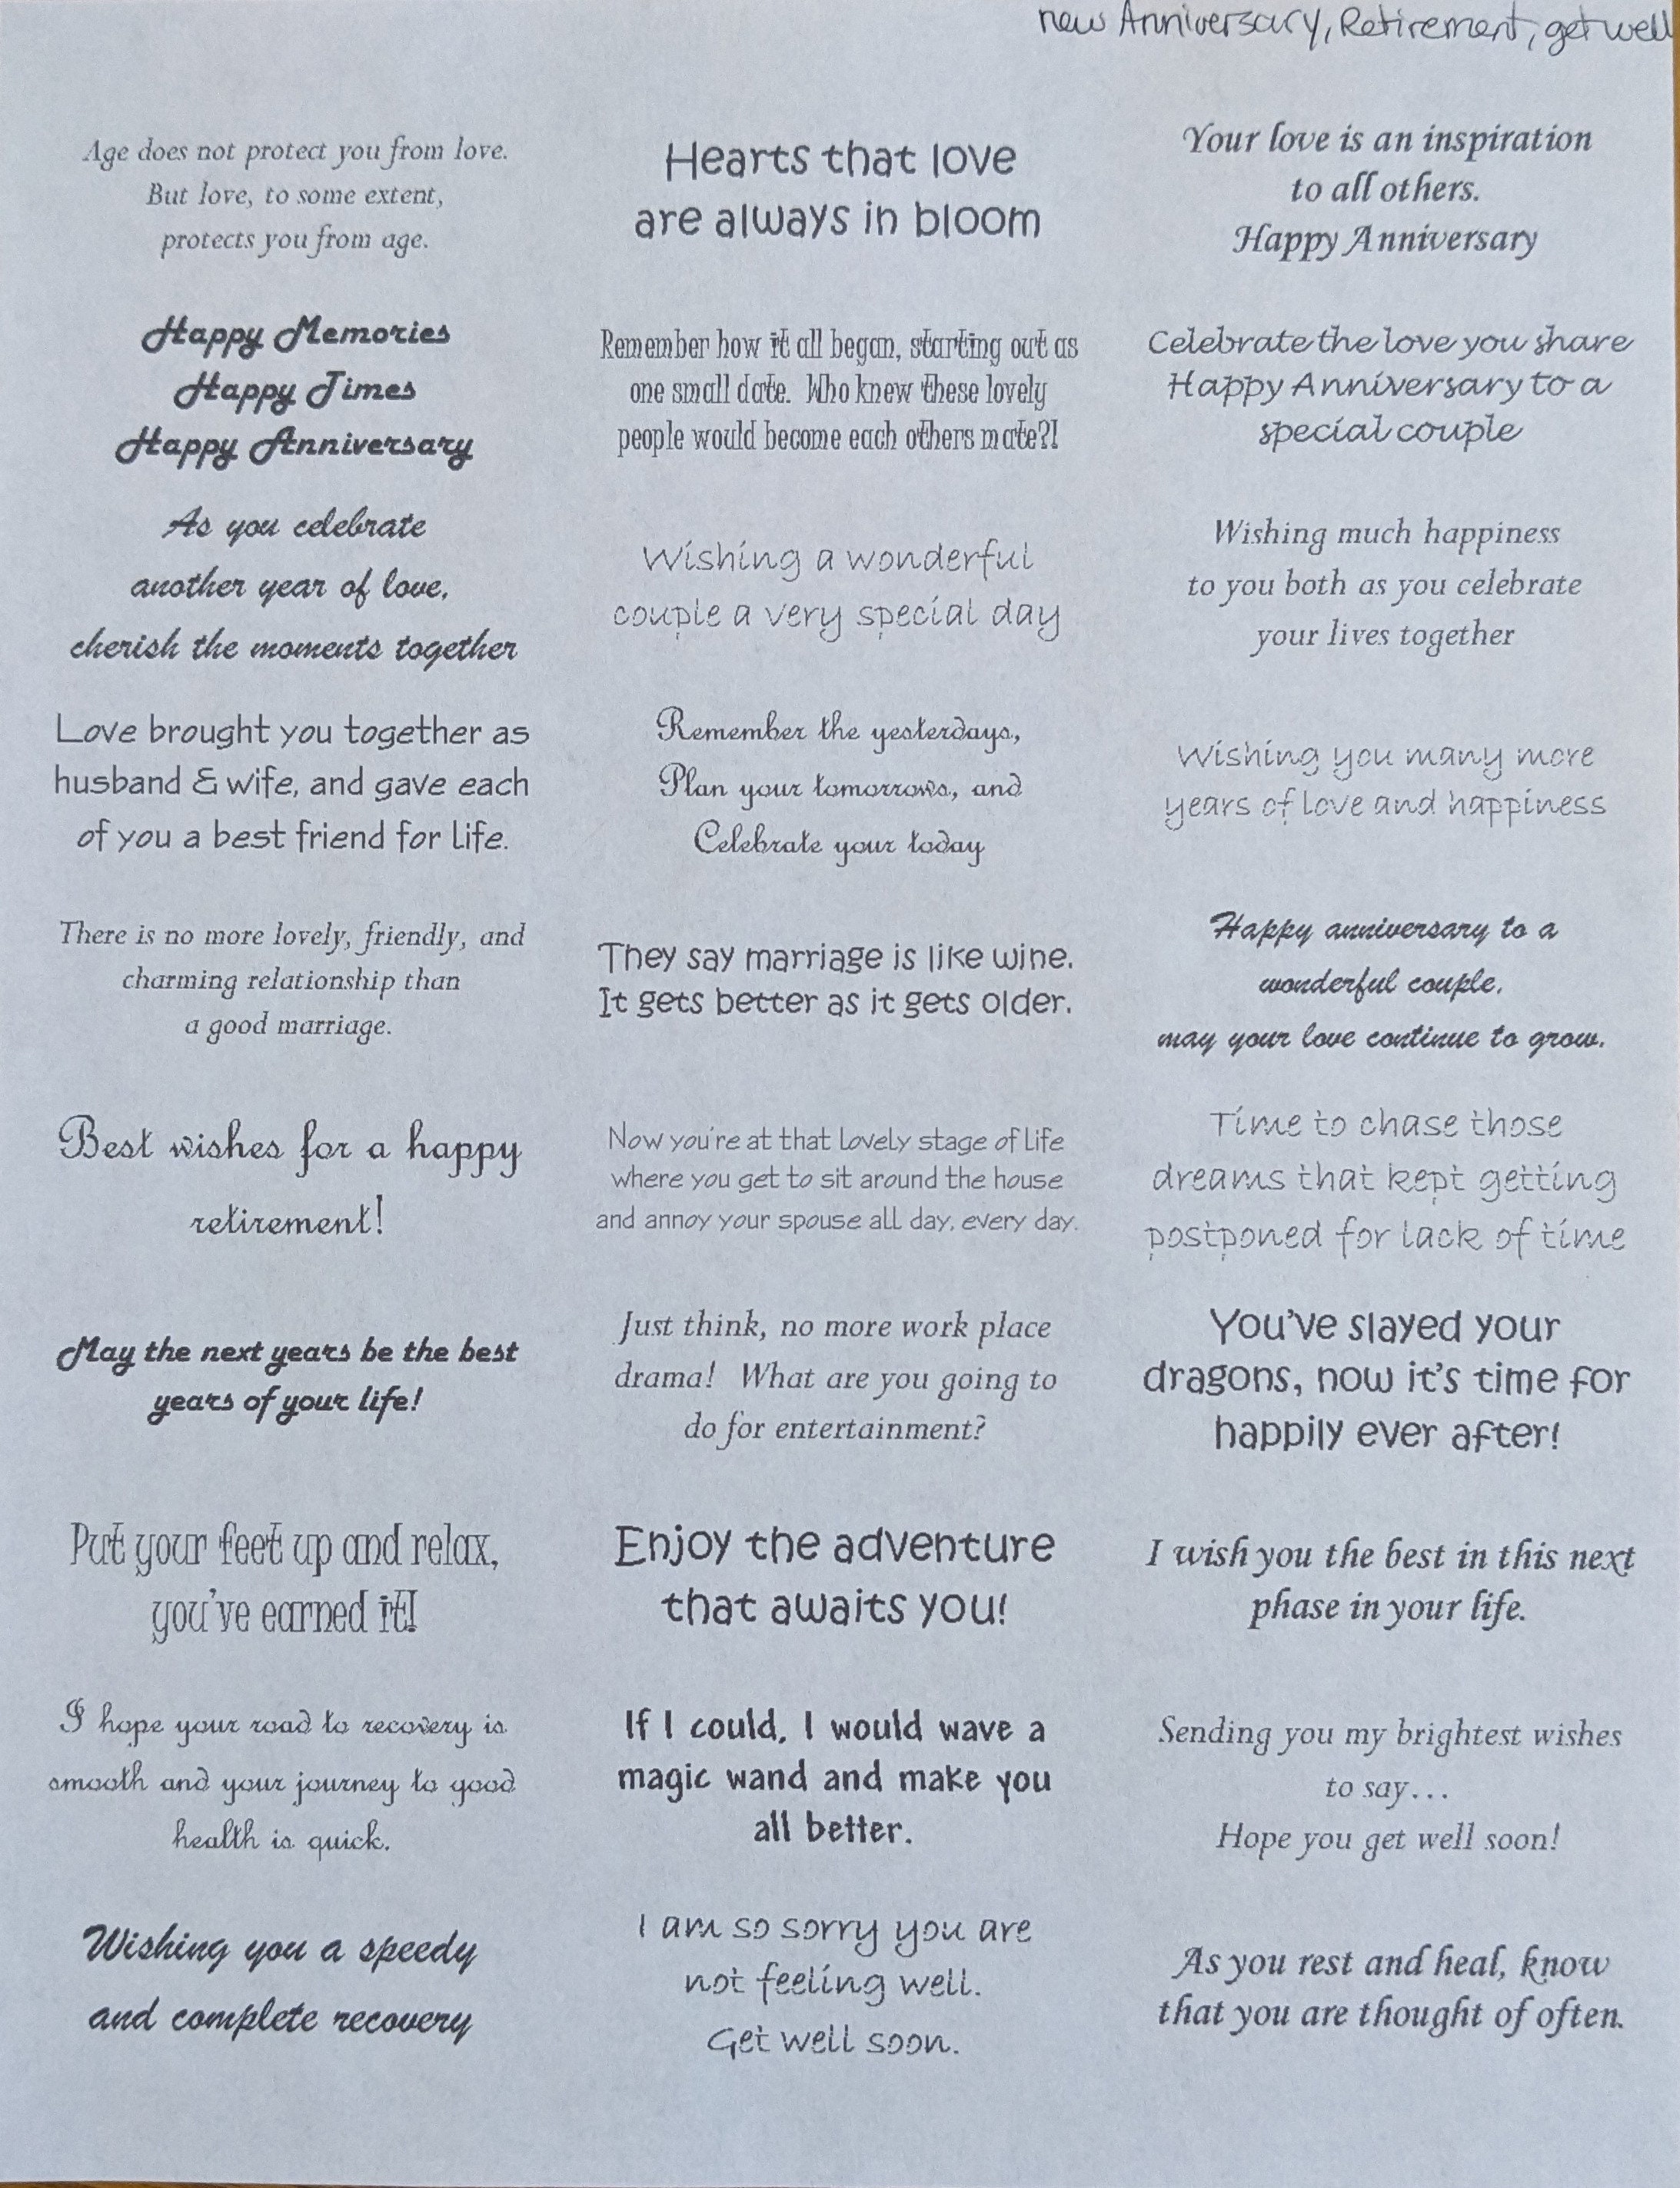 new Anniversary, Retirement, get well
Age does not protect you from love.
But love, to some extent,
protects you from age.
Hearts that love
are always in bloom
Your love is an inspiration
to all others.
Happy Anniversary
Happy Memories
Happy Times
Happy Anniversary
Remember how it all began, starting out as
one small date. Who knew these lovely
people would become each others mate?!
Celebrate the love you share
Happy Anniversary to a
special couple
As you celebrate
another year of love,
cherish the moments together
Wishing a wonderful
couple a very special day
Wishing much happiness
to you both as you celebrate
your lives together
Love brought you together as
husband & wife, and gave each
of you a best friend for life.
Remember the yesterdays,
Plan your tomorrows, and
Celebrate your today
Wishing you many more
years of love and happiness
There is no more lovely, friendly, and
charming relationship than
a good marriage.
They say marriage is like wine.
It gets better as it gets older.
Happy anniversary to a
wonderful couple,
may your love continue to grow.
Best wishes for a happy
retirement!
Now you're at that lovely stage of life
where you get to sit around the house
and annoy your spouse all day, every day.
Time to chase those
dreams that kept getting
postponed for lack of time
May the next years be the best
years of your life!
Just think, no more work place
drama! What are you going to
do for entertainment?
You've slayed your
dragons, now it's time for
happily ever after!
Put your feet up and relax,
you've earned it!
Enjoy the adventure
that awaits you!
I wish you the best in this next
phase in your life.
I hope your road to recovery is
smooth and your journey to good
health is quick.
If I could, I would wave a
magic wand and make you
all better.
Sending you my brightest wishes
to say...
Hope you get well soon!
Wishing you a speedy
and complete recovery
I am so sorry you are
not feeling well.
Get well soon.
As you rest and heal, know
that you are thought of often.